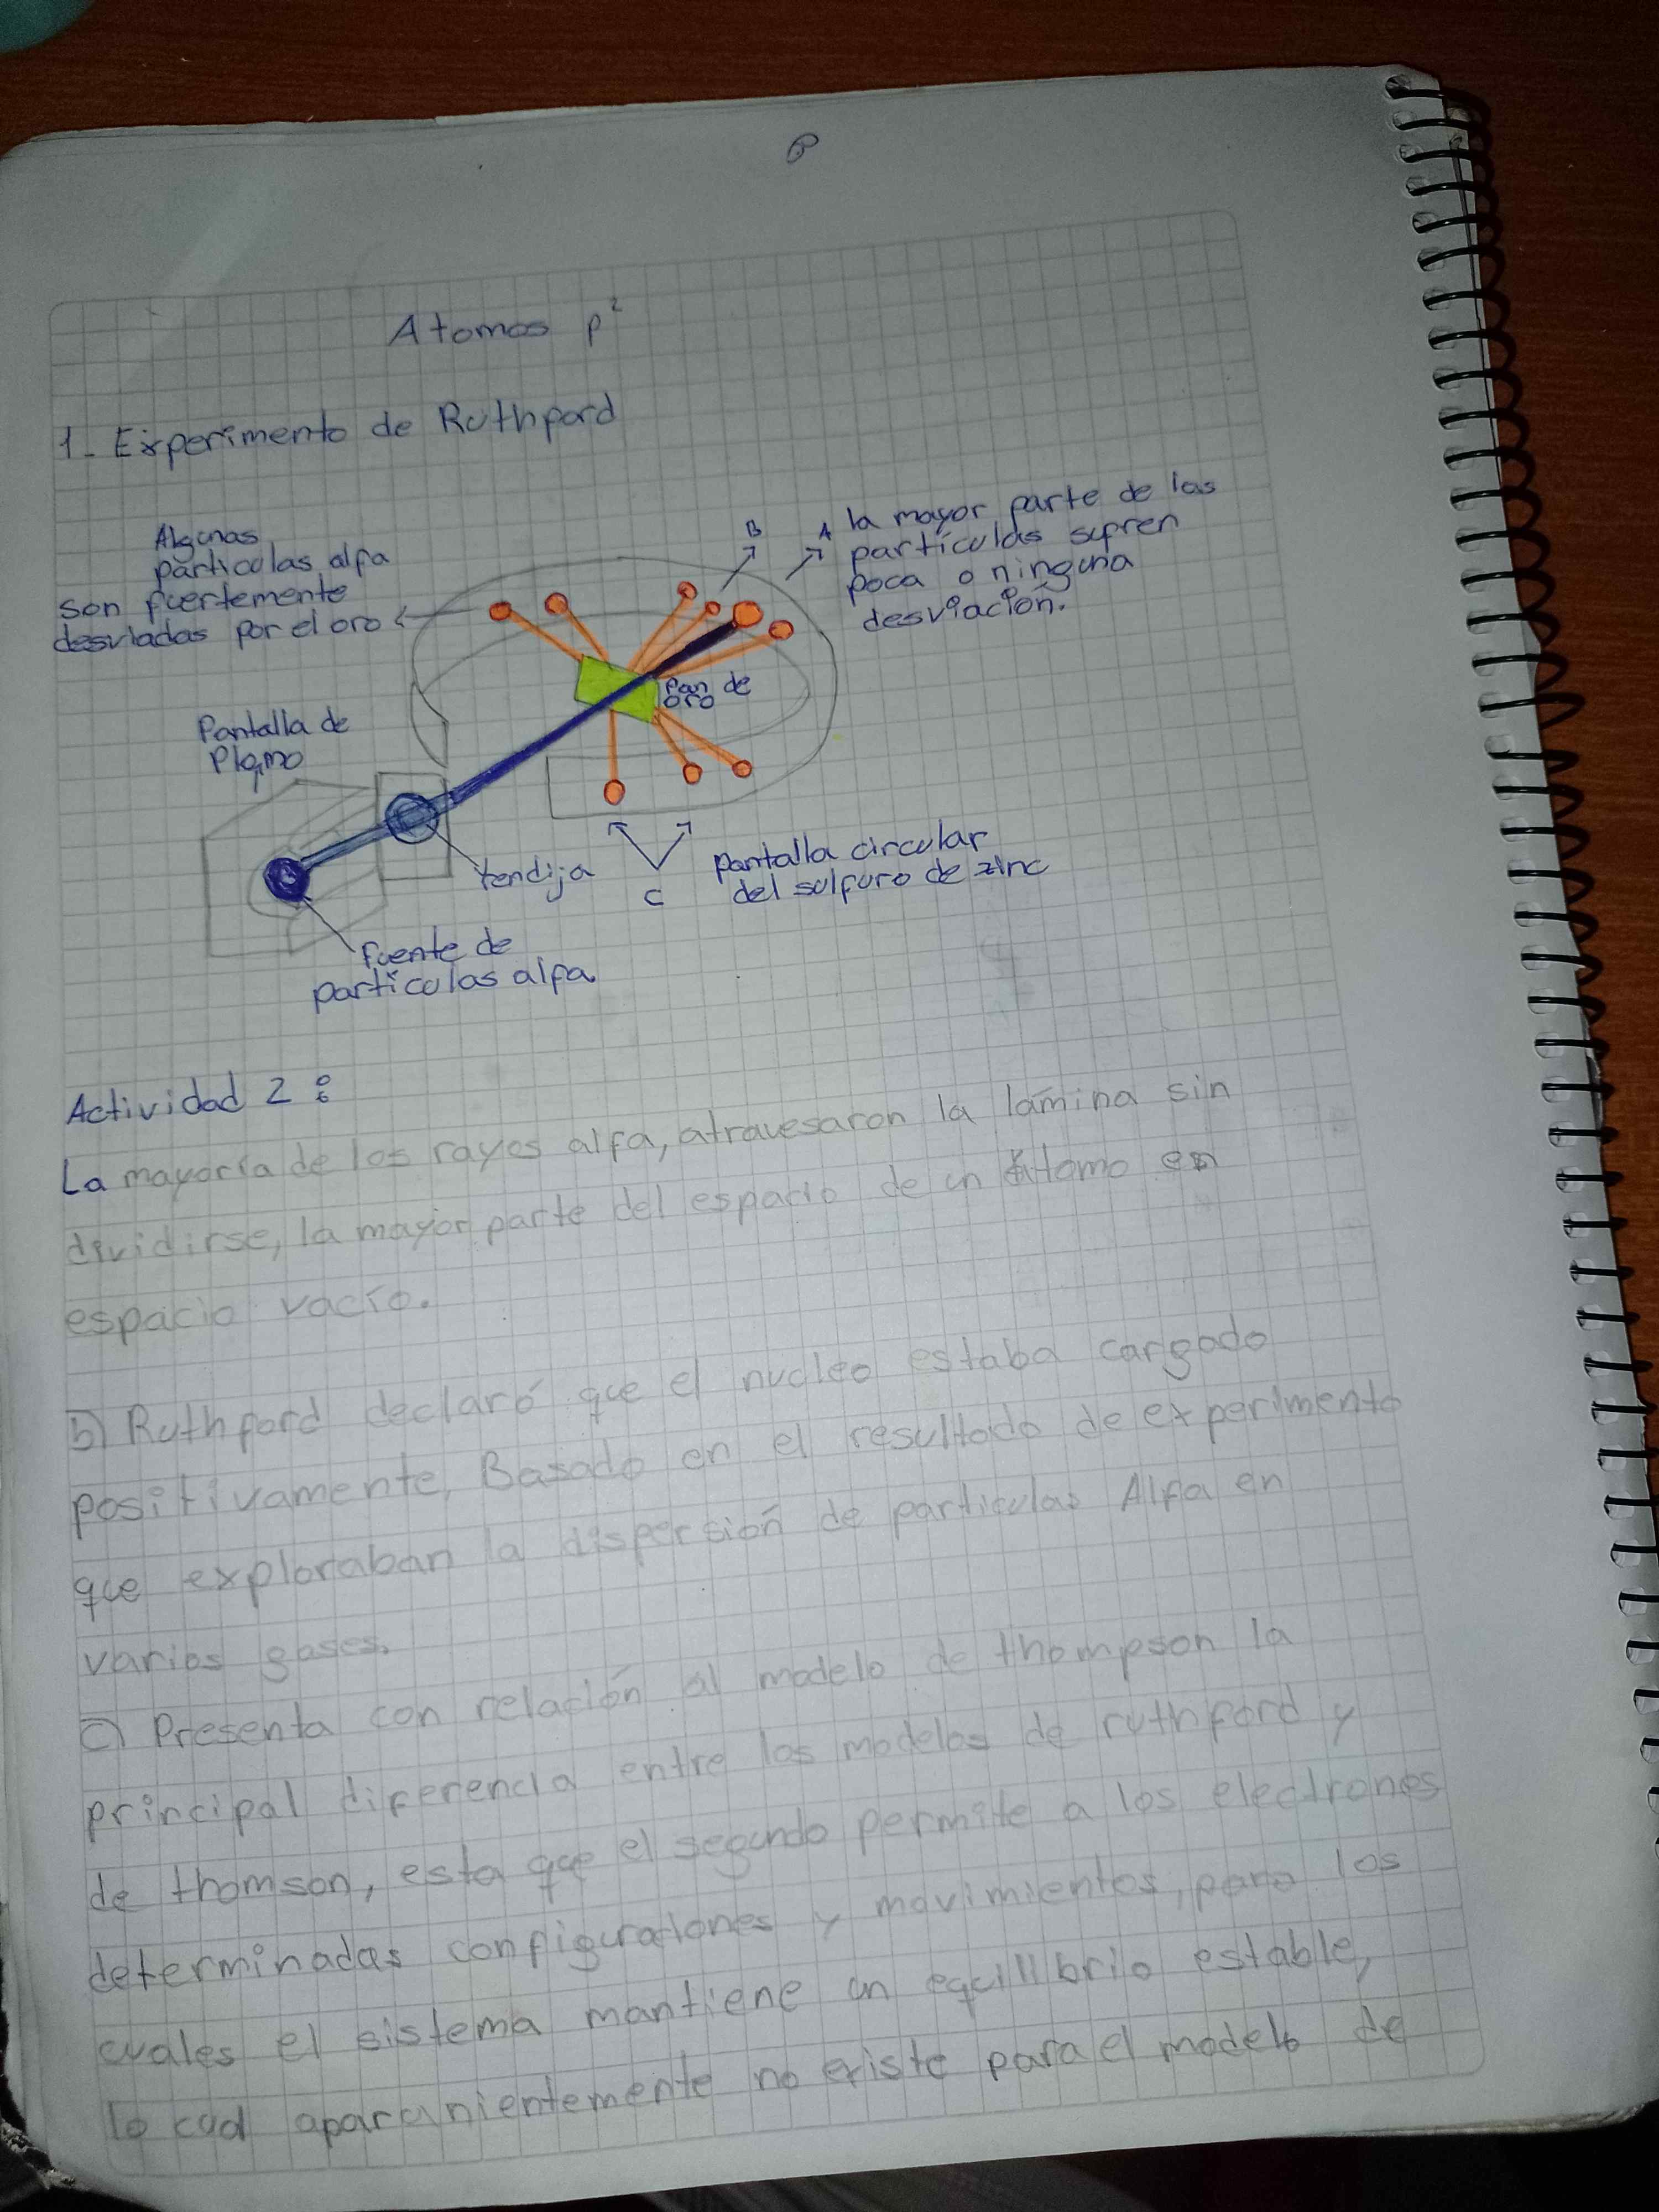 Atomos p²
1- Experimento de Ruthford
Algunas
particulas alfa
son fuertemente
desviadas por el oro
B
A la mayor parte de las
partículas sufren
poca o ninguna
desviación.
Pan de
oro
Pantalla de
Plomo
rendija
C
pantalla circular
del sulfuro de zinc
fuente de
particulas alfa
Actividad 2:
La mayoría de los rayos alfa, atravesaron la lámina sin
dividirse, la mayor parte del espacio de un átomo es
espacio vacío.
b) Ruthford declaró que el nucleo estaba cargado
positivamente, Basado en el resultado de experimento
que exploraban la dispersión de particulas Alfa en
varios gases.
c) Presenta con relación al modelo de thompson la
principal diferencia entre los modelos de ruthford y
de thomson, esta que el segundo permite a los electrones
determinadas configuraciones y movimientos, para los
cuales el sistema mantiene un equilibrio estable,
lo cual aparanientemente no existe para el modelo de